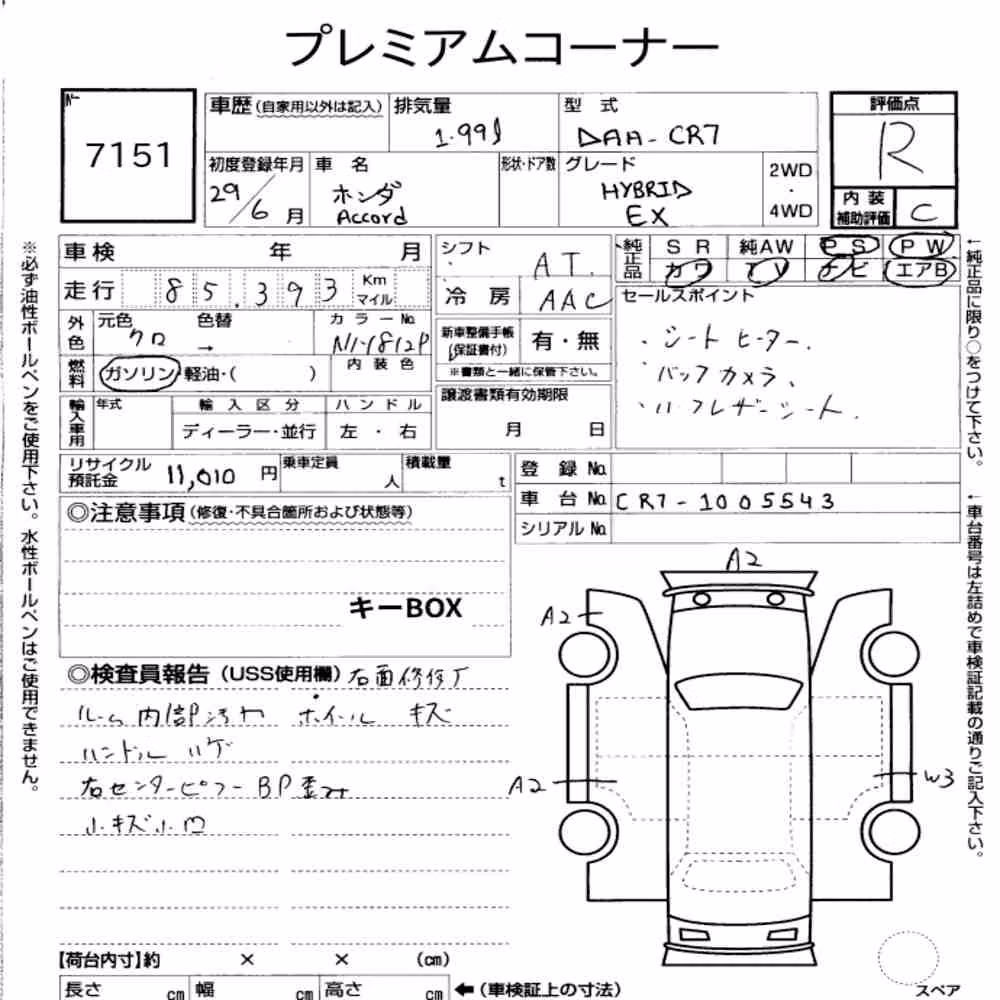 プレミアムコーナー
№
7151
車歴(自家用以外は記入)
排気量
1.99ℓ
型 式
DAA-CR7
評価点
R
初度登録年月
29/6月
車 名
ホンダ
Accord
形状・ドア数
グレード
HYBRID
EX
2WD
・
4WD
内装
補助評価
C
車検 年 月
シフト
AT.
純正品
SR 純AW PS PW
カワ TV ナビ エアB
走行 85,393 Km
マイル
冷房
AAC
セールスポイント
・シートヒーター.
・バックカメラ、
・ハーフレザーシート.
外色
元色 色替 カラーNo
クロ → NH-1812P
新車整備手帳
(保証書付)
有・無
※書類と一緒に保管下さい。
燃料
ガソリン・軽油・( )
内装色
譲渡書類有効期限
月 日
輸入車用
年式 輸入区分 ハンドル
ディーラー・並行 左・右
リサイクル
預託金
11,010 円
乗車定員
人
積載量
t
登録No.
車台No. CR7-1005543
シリアルNo.
◎注意事項(修復・不具合箇所および状態等)
キーBOX
◎検査員報告(USS使用欄) 右面修復了
ルーム内部汚れ ホイールキズ
ハンドルハゲ
右センターピラーBP歪み
小キズ小凹
A2
A2
A2
W3
【荷台内寸】約 × × (cm)
長さ cm 幅 cm 高さ cm ←(車検証上の寸法)
スペア
※必ず油性ボールペンをご使用下さい。水性ボールペンはご使用できません。
←純正品に限り○をつけて下さい。
←車台番号は左詰めで車検証記載の通りご記入下さい。